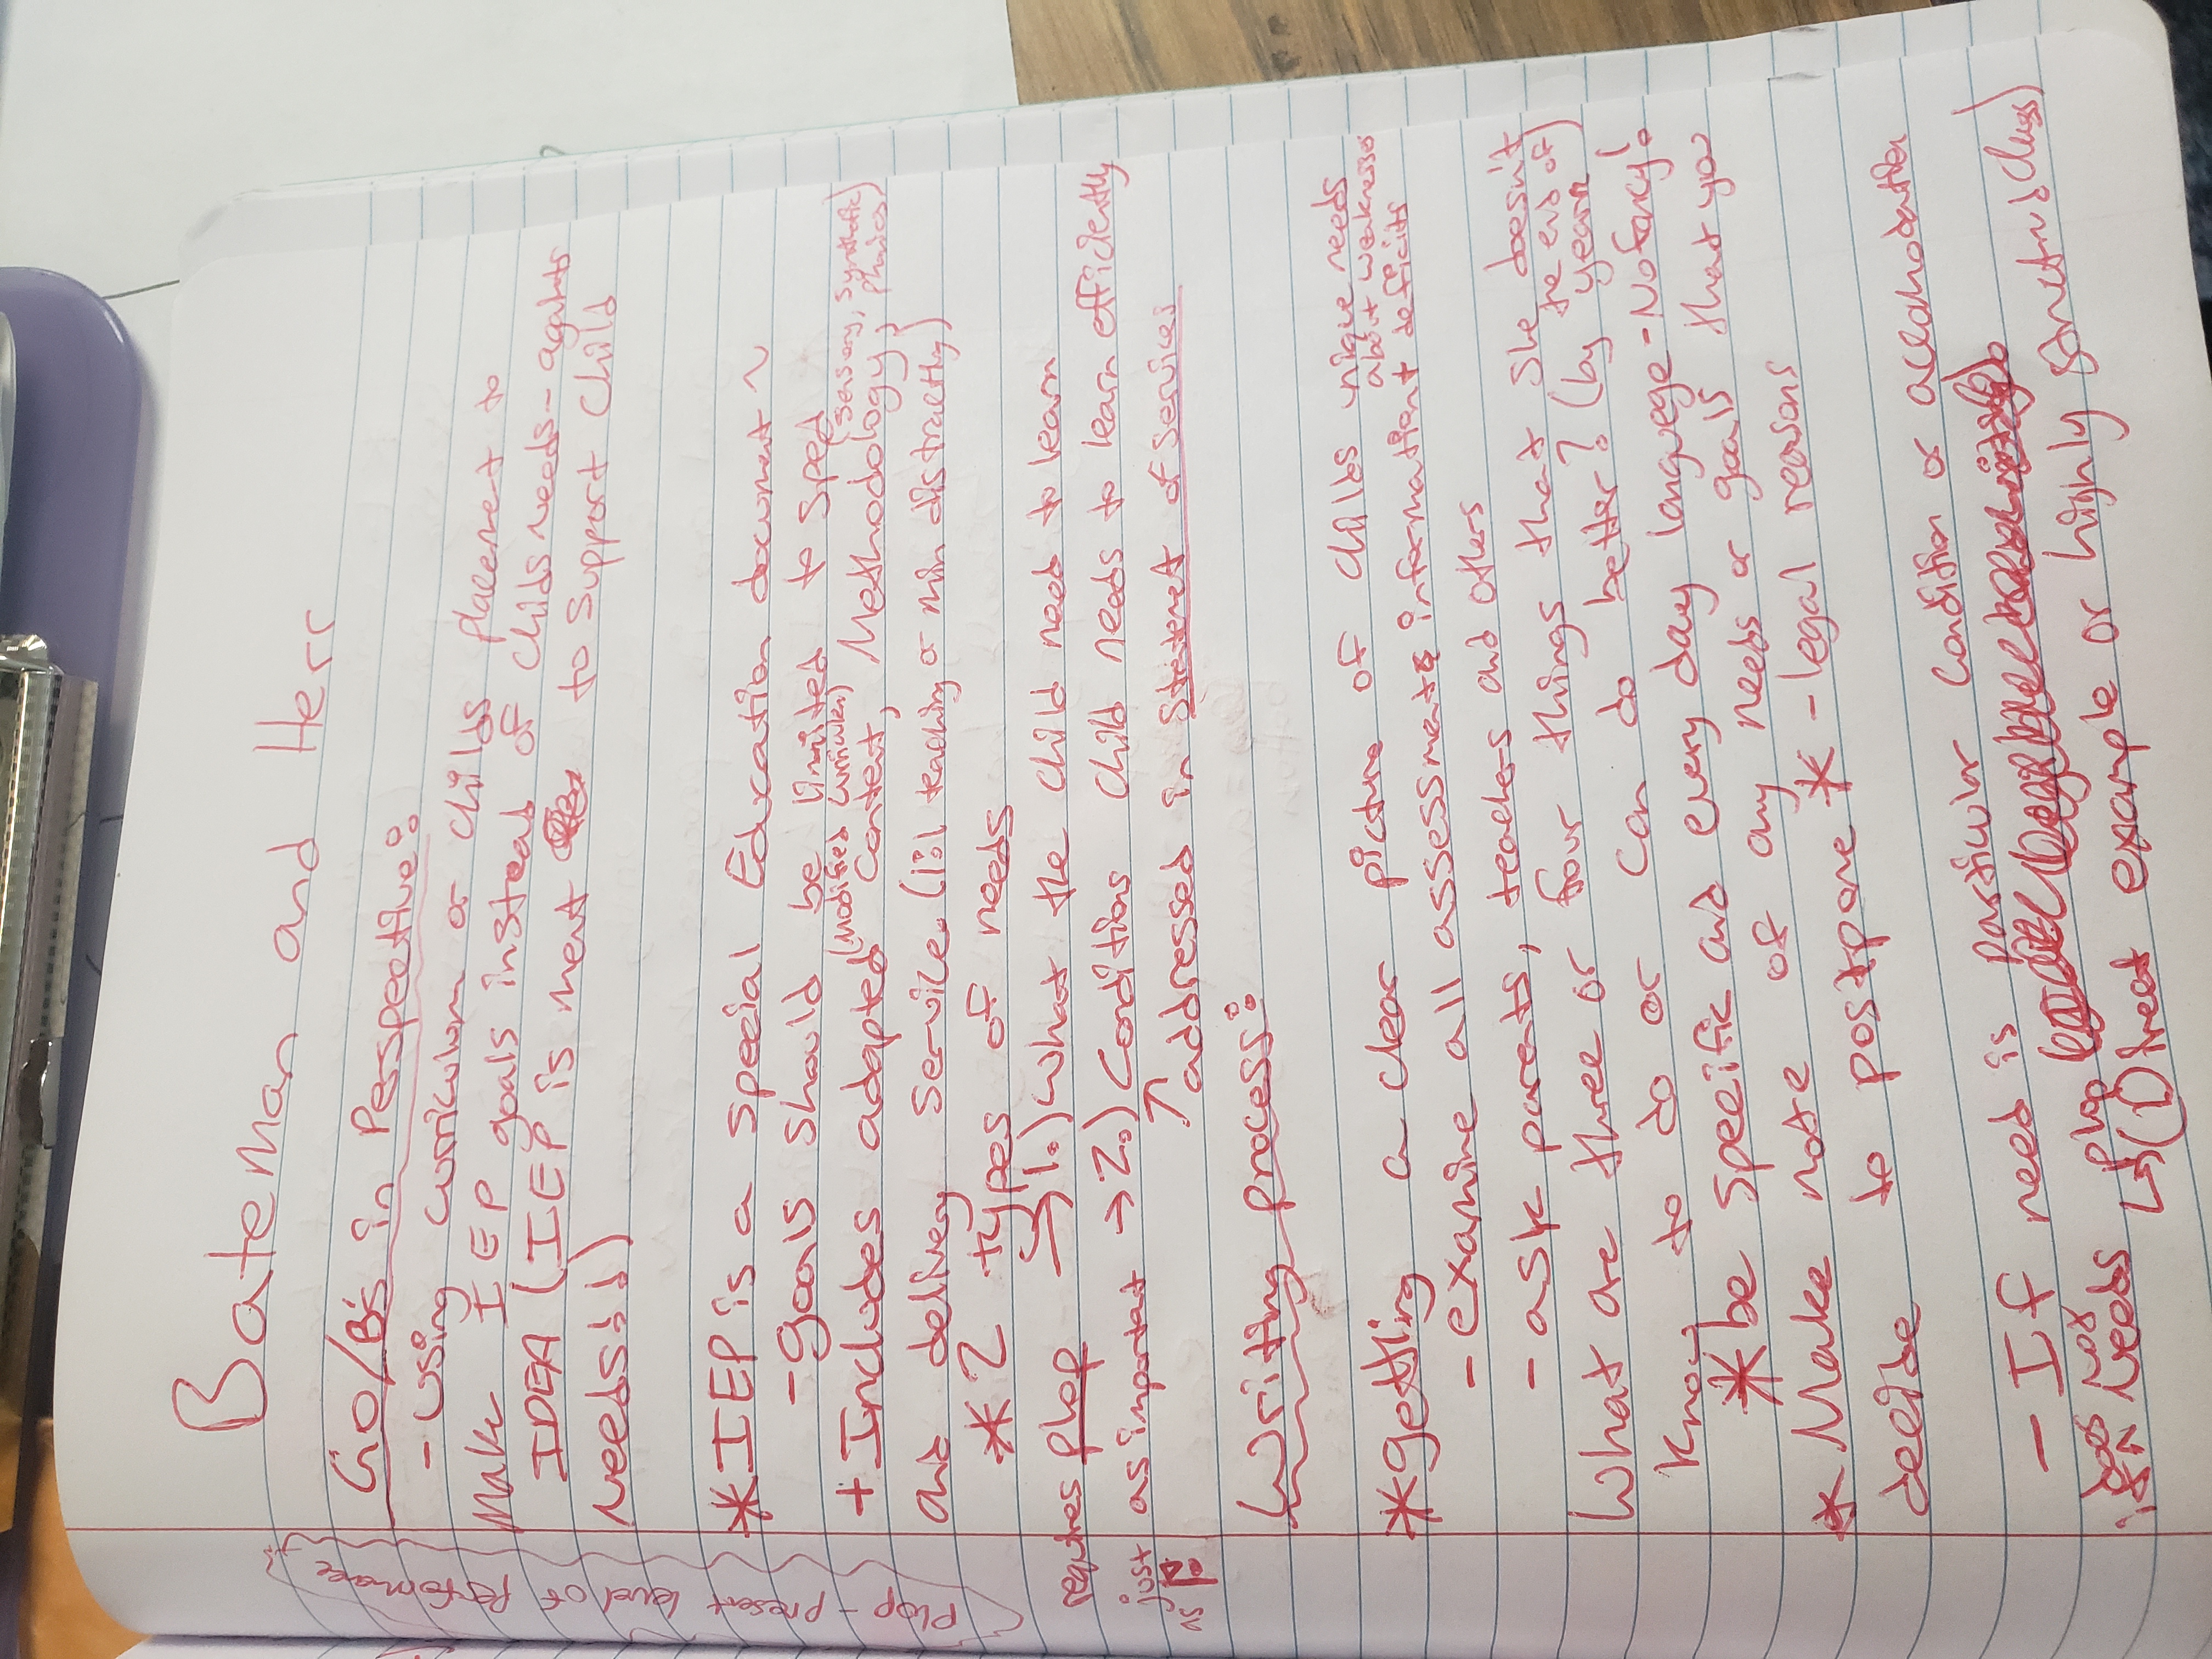 Bateman and Herr
GO/B's in Perspective:
- Using curriculum or childs placement to
make IEP goals instead of childs needs - agants
IDEA (IEP is ment to support child
needs!!!)
Plop - Present level of Performance
*IEP is a special Education document ~
- goals should be limited to sped
(modified curriculem) (sensory, synthetic
+ Includes adapted content, Methodology, phonics)
and delivery service. (1:1 teaching or min distractly)
* 2 types of needs
requires plop → 1.) What the child need to learn
just as important → 2.) Conditions child needs to learn efficiently
as #1 ↑ addressed in statement of services
Writing process:
*getting a clear picture of childs unique needs
about weaknesses
- examine all assessments information + deficits
- ask parents, teachers and others
What are three or four things that she doesn't
know to do or can do better? (by the end of year)
* be specific and every day language - No fancy!
* Make note of any needs or goals that you
decide to postpone * - legal reasons
- If need is particular condition or accomodation
does not
it needs plop
↳ (Direct example or highly structured class)